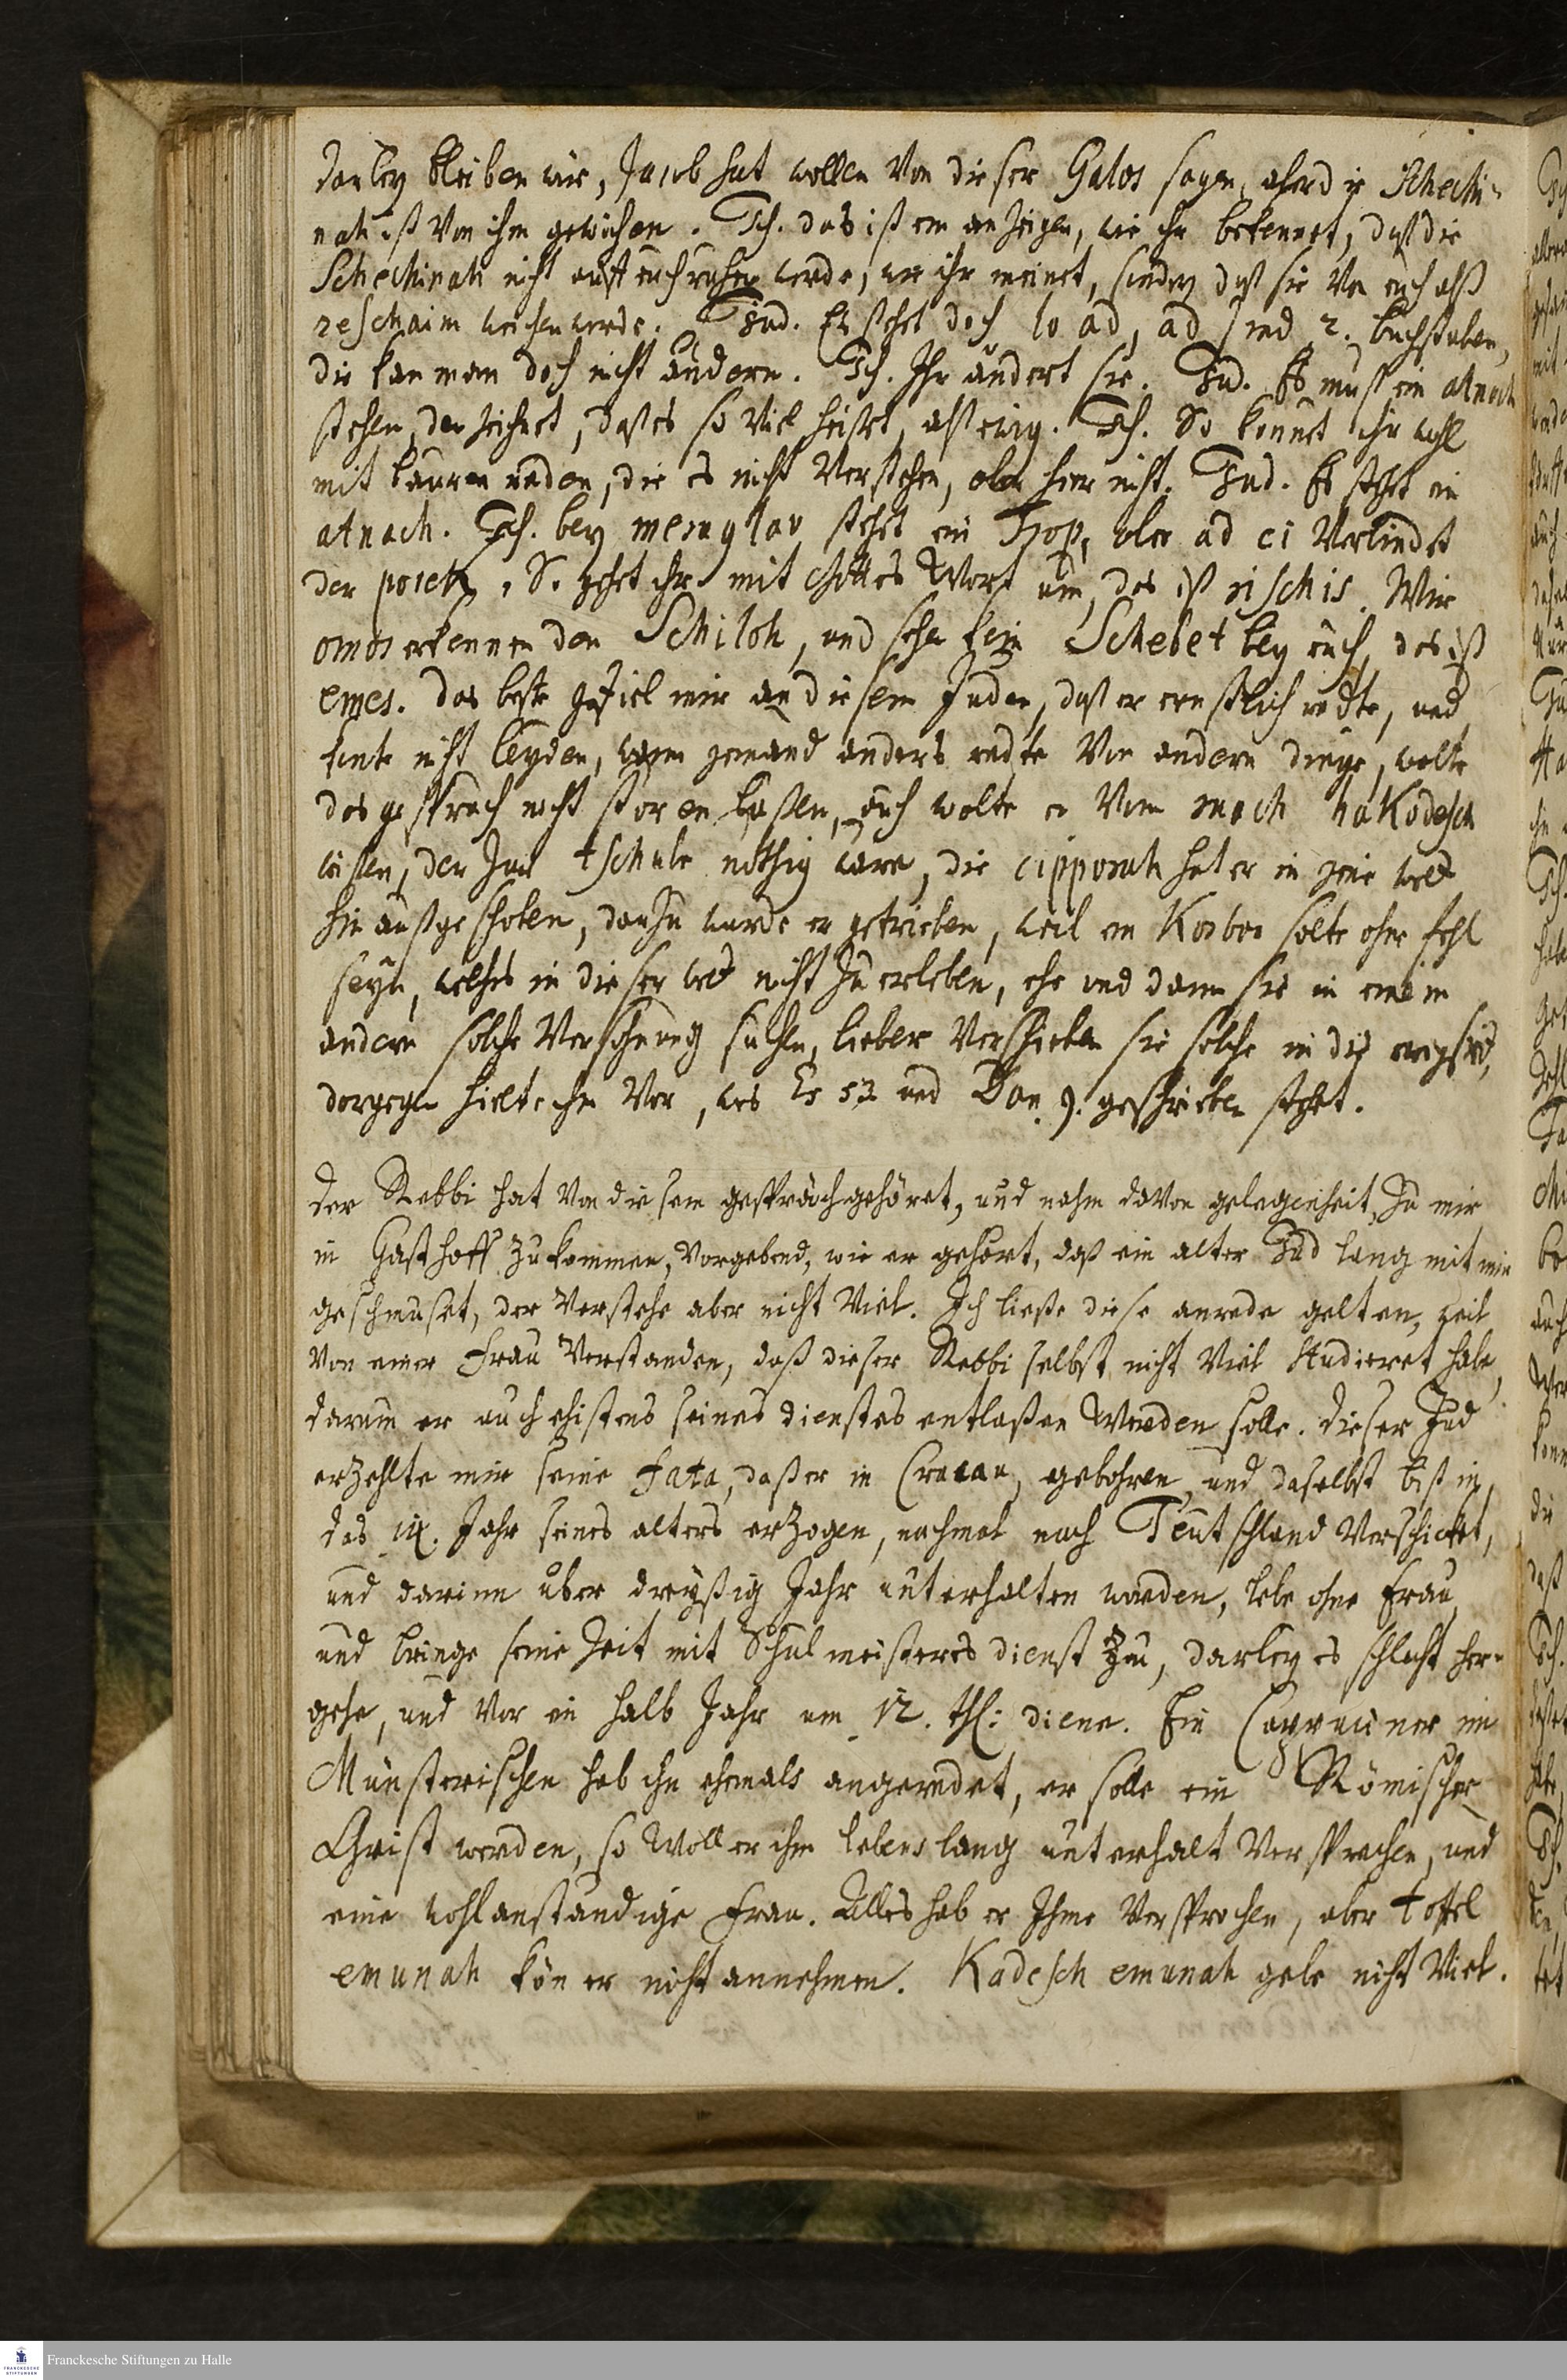 darbey bleiben wir, Jacob hat wollen von dieser Galos sagen, aber die Schechi-
nah ist von ihm gewichen. Ich. das ist ein anzeigen, wie ihr bekennet, daß die
Schechinah nicht auff euch ruhen werde, wie ihr meinet, sondern daß sie von euch alß
reschaim weichen werde. Jud. Es stehet doch lo ad, ad sind 2. buchstaben,
die kan man doch nicht ändern. Ich. Ihr ändert sie. Jud. Es muß ein atnach
stehen, der zeichnet, daß es so viel heißet, alß ewig. Ich. So könnet ihr wohl
mit bauren reden, die es nicht verstehen, aber hier nicht. Jud. Es stehet ein
atnach. Ich. bey meraglav stehet ein Trop, aber ad ci verbindet
der posek, So gehet ihr mit Gottes Wort um, das ist rischis. Wir
omos erkennen den Schiloh, und sehen kein Schebet bey euch, das ist
emes. das beste gefiel mir an diesem Juden, daß er ernstlich redte, und
konte nicht leyden, wann jemand anders redte von andern dinge, wolte
das gespräch nicht stören laßen, auch wolte er vom ruach hakodesch
wissen, der zur tschube nöthig wäre, die cipporah hat er in jene welt
hinaußgeschoben, darzu wurde er getrieben, weil ein Korbon solte ohne fehl
seyn, welches in dieser welt nicht zu erleben, ehe und dann sie in einem
andern solche Versöhnung suchen, lieber verschieben sie solche in die ewigkeit,
dargegen hielte ihm vor, was Es 53 und Dan. 9. geschrieben stehet.
Der Rebbi hat von diesem gespräch gehöret, und nahm davon gelegenheit, zu mir
in Gasthoff zukommen, vorgebend, wie er gehört, daß ein alter Jud lang mit mir
geschmuset, der verstehe aber nicht viel. Ich ließe diese anrede gelten, weil
von einer Frau verstanden, daß dieser Rebbi selbst nicht viel studieret habe,
darum er auch ehistens seines dienstes entlaßen werden solle. Dieser Jud
erzehlte mir seine fata, daß er in Cracau gebohren, und daselbst biß in
das Jahr seines alters erzogen, nachmal nach Teutschland verschicket,
und darinn über dreyßig Jahr unterhalten worden, lebe ohne Frau,
und bringe seine Zeit mit Schulmeisters dienst zu, darbey es schlecht her-
gehe, und vor ein halb Jahr um 12. thl: diene. Ein Capuciner im
Münsterischen hab ihn ehemals angeredet, er solle ein Römischer
Christ werden, so woll er ihm lebenslang unterhalt versprechen, und
eine wohlanständige Frau. Alles hab er Ihme versprochen, aber toffel
emunah kön er nicht annehmen. Kadesch emunah gebe nicht viel.
Franckesche Stiftungen zu Halle